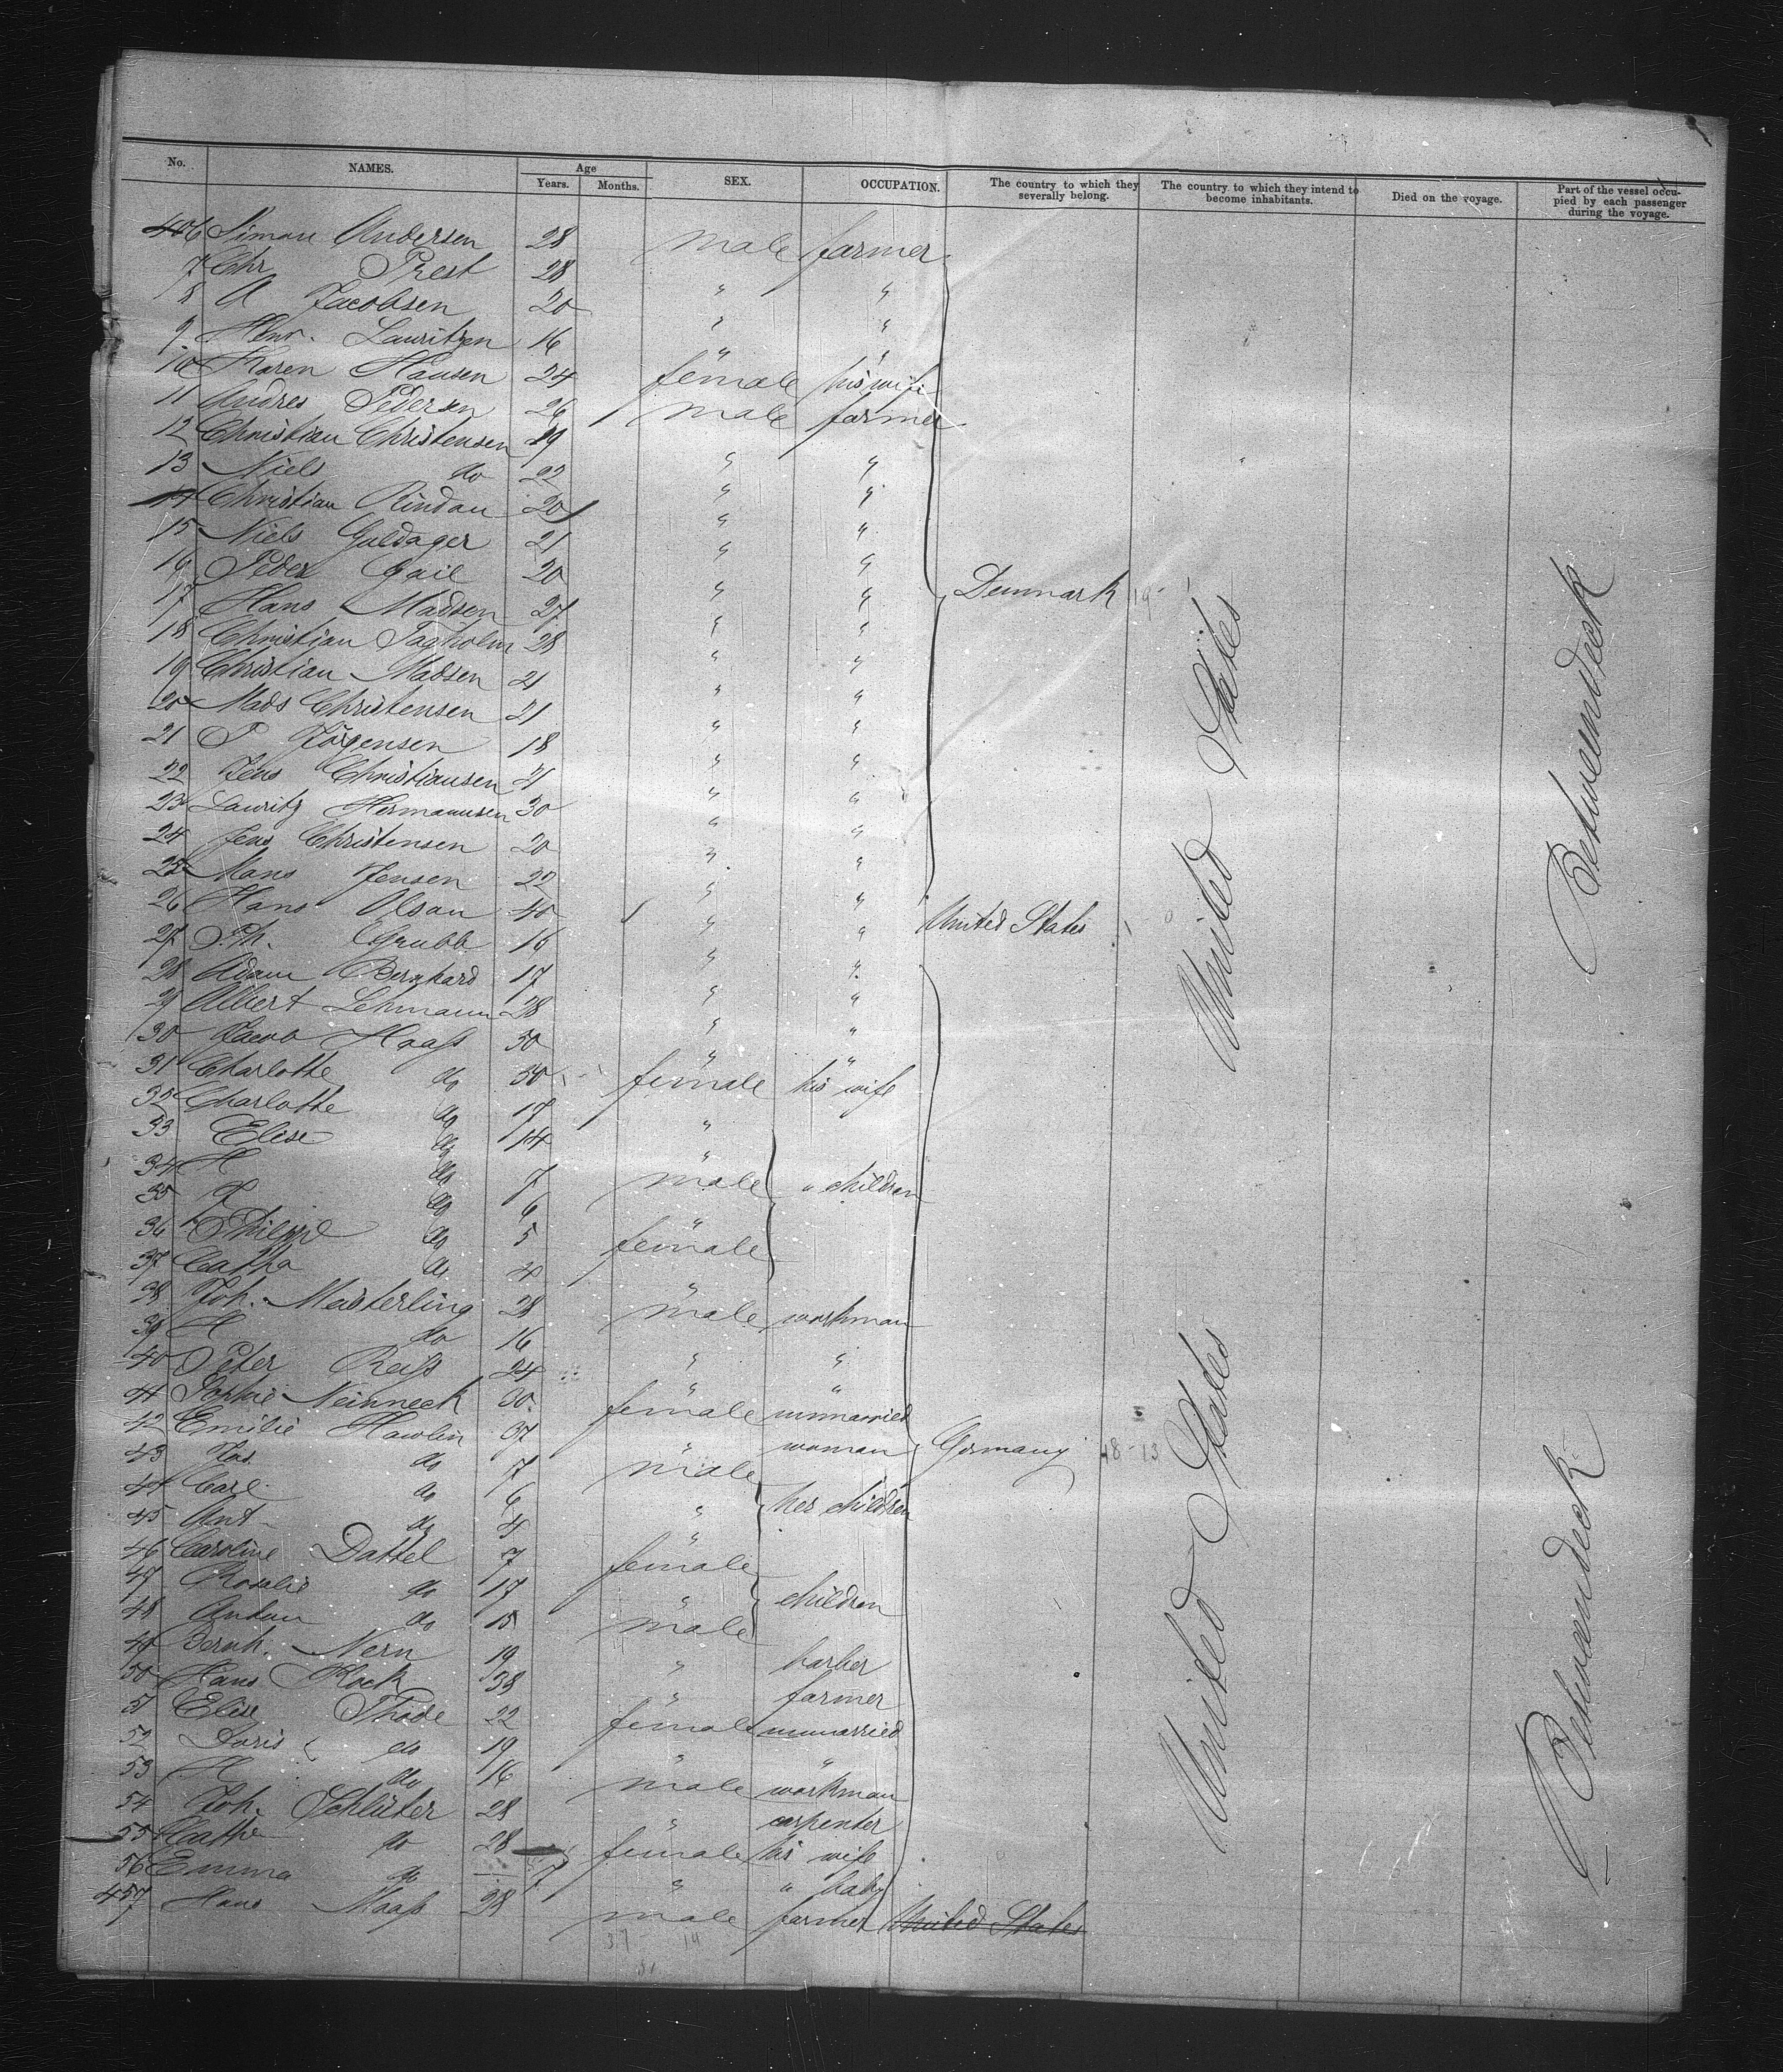 No. NAMES. Age Years. Months. SEX. OCCUPATION. The country to which they severally belong. The country to which they intend to become inhabitants. Died on the voyage. Part of the vessel occupied by each passenger during the voyage.
406 Simon Andersen 28 male farmer
7 Chr Prest 28 " "
8 A Jacobsen 20 " "
9 Henr. Lauritzen 16 " "
10 Karen Hansen 24 female his wife
11 Andres Pedersen 26 male farmer
12 Christian Christensen 29 " "
13 Niels do 22 " "
14 Christian Rindau 20 " "
15 Niels Guldager 21 " "
16 Peder Gail 20 " " Denmark
17 Hans Madsen 27 " "
18 Christian Tagholm 28 " "
19 Christian Madsen 21 " "
20 Mads Christensen 21 " "
21 P Jörgensen 18 " "
22 Jens Christiansen 21 " "
23 Lauritz Hermannsen 30 " "
24 Jens Christensen 20 " "
25 Mans Jensen 22 " "
26 Hans Olsan 40 " " United States
27 Ph. Grubb 16 " "
28 Adam Bernhard 17 " "
29 Albert Lehmann 28 " "
30 Jacob Haaß 50 " "
31 Charlotte do 50 female his wife
32 Charlotte do 17 "
33 Elise do 14 "
34 H do 7 male " children
35 J do 6 "
36 Philipp do 5 "
37 Catha do 4 female
38 Joh. Masterling 28 male workman
39 H do 16 " "
40 Peter Reiß 24 " "
41 Sophie Neinneck 30 female unmarried
42 Emilie Hawlin 37 " woman Germany
43 Jos. do 7 male
44 Carl do 6 " her children
45 Ant do 4 "
46 Caroline Dattel 7 female
47 Rosalie do 17 " children
48 Anton do 15 male
49 Bernh. Nern 19 " barber
50 Hans Kock 38 " farmer
51 Elise Thode 22 female unmarried
52 Doris do 19 " "
53 H do 16 male workman
54 Joh. Schlüter 28 " carpenter
55 Cathe do 28 female his wife
56 Emma do 7 " " baby
457 Hans Maaß 28 male farmer United States
United States
United States
Betweendeck
Betweendeck